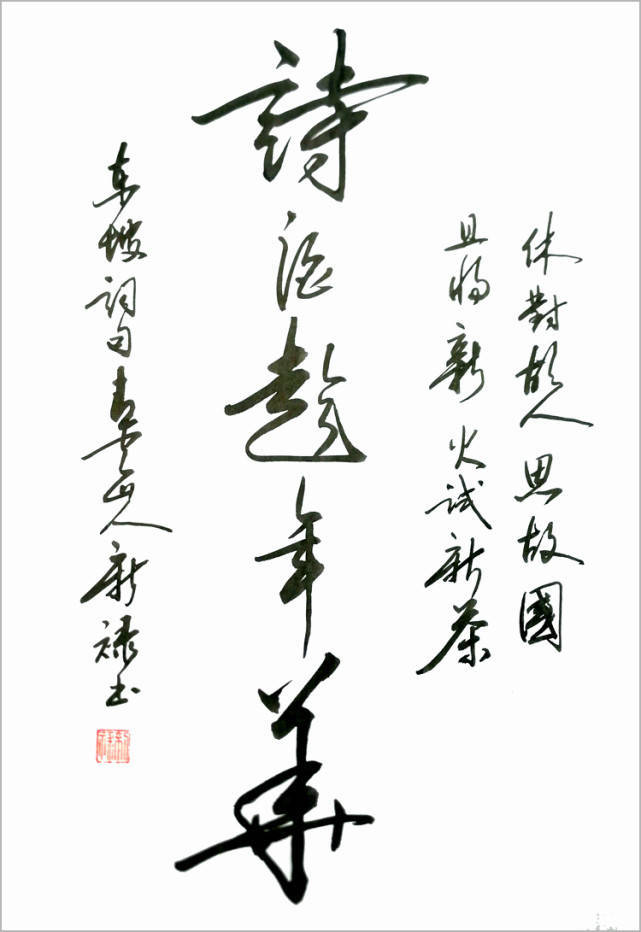 休對故人思故國
且将新火試新茶
詩酒趁年華
东坡詞句山人新禄书